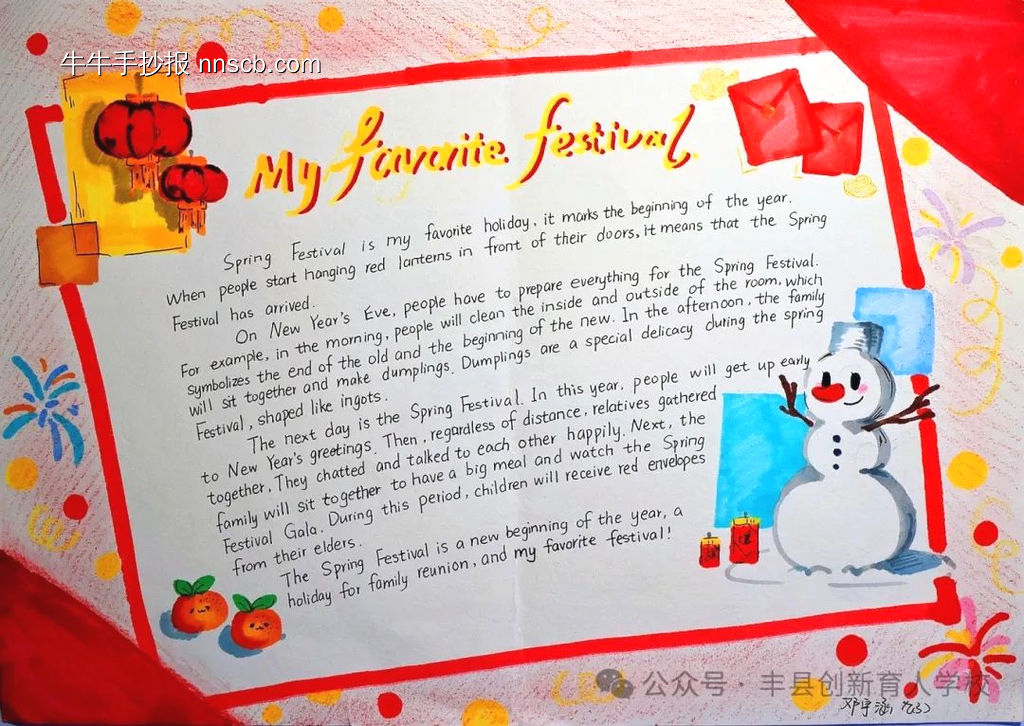 牛牛手抄报 nnscb.com
My favorite festival
Spring Festival is my favorite holiday, it marks the beginning of the year.
When people start hanging red lanterns in front of their doors, it means that the Spring
Festival has arrived.
On New Year's Eve, people have to prepare everything for the Spring Festival.
For example, in the morning, people will clean the inside and outside of the room, which
symbolizes the end of the old and the beginning of the new. In the afternoon, the family
will sit together and make dumplings. Dumplings are a special delicacy during the spring
Festival, shaped like ingots.
The next day is the Spring Festival. In this year, people will get up early
to New Year's greetings. Then, regardless of distance, relatives gathered
together. They chatted and talked to each other happily. Next, the
family will sit together to have a big meal and watch the Spring
Festival Gala. During this period, children will receive red envelopes
from their elders.
The Spring Festival is a new beginning of the year, a
holiday for family reunion, and my favorite festival!
公众号 · 丰县创新育人学校